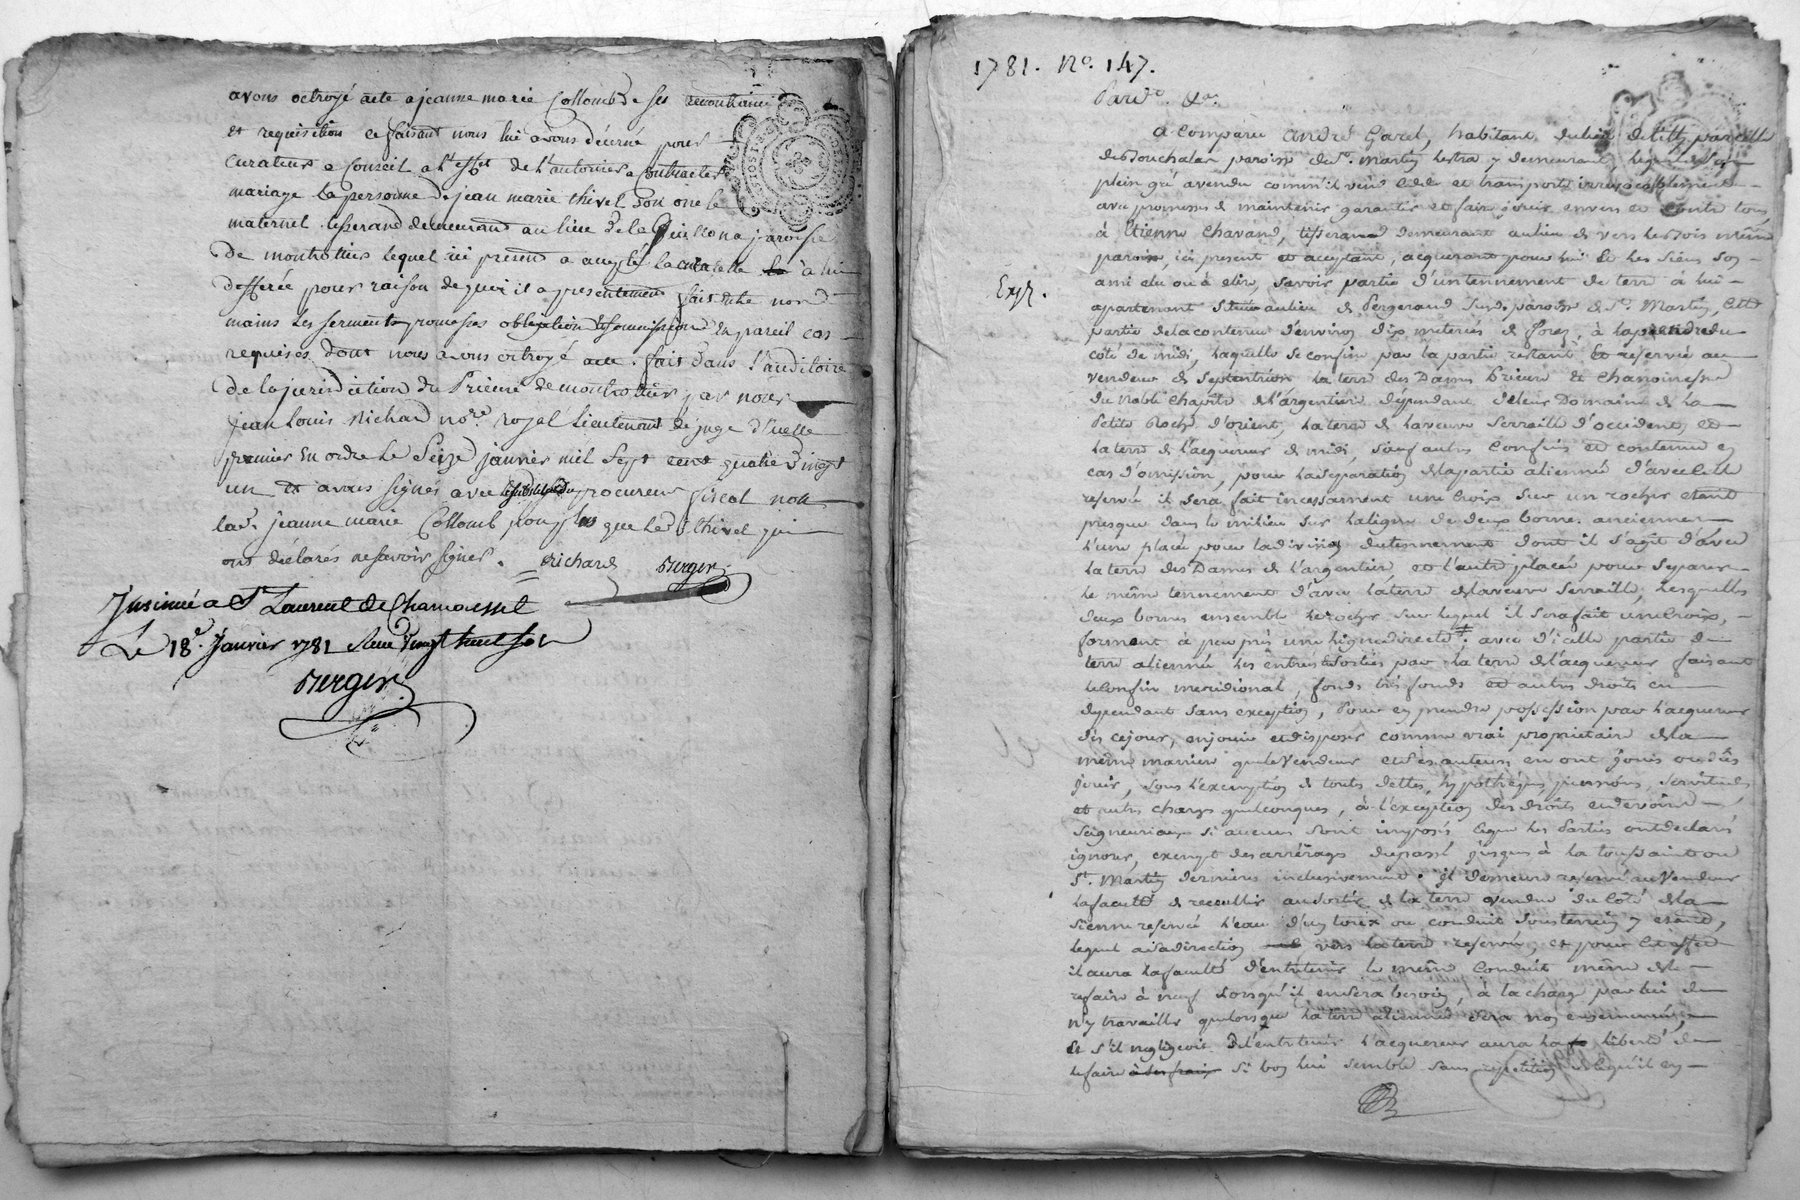 avons octroyé acte a jeanne marie Collomb de ses remontrances
et requisition ce faisant nous lui avons décerné pour
curateur e Conseil a l'effet de l'autoriser a Contracter
mariage la personne de jean marie thivel son oncle
maternel tisserand demeurant au lieu de la paroisse
de montrottier lequel ici present a accepté la curatelle à lui
defferée pour raison de quoi il a presentement fait entre nos
mains les serments promesses obligation et soumission en pareil cas
requises dont nous avons octroyé acte. fait dans l'auditoire
de la jurisdiction du Prieuré de montrottier par nous
jean Louis Richard no.re royal Lieutenant de juge d'icelle
premier en ordre le Seize janvier mil sept cent quatre vingt
un et avons signés avec procureur fiscal non
lad. jeanne marie Collomb non plus que led. thivel qui
ont déclarés ne savoir signer. Richard Berger
Insinué a St Laurent de Chamousset
Le 18e. Janvier 1781 Reçu vingt huit sol
Berger
1781. No. 147.
Pard.t &a.
a comparu andré Garel, habitant du lieu
paroisse de St. Martin lestra y demeurant lequel de son
plein gré a vendu comm'il vend cede et transporte irrevocablement
avec promesses de maintenir garantir et faire jouir envers et contre tous
à Etienne Chavand, tisserand demeurant au lieu de vers les bois même
paroisse, ici present et aceptant, acquerant pour lui et les siens son
Exp.
ami elu ou à elire, savoir partie d'un tennement de terre à lui
apartenant Situé au lieu de Pergerand Susd. paroisse de St. Martin, cette
partie de la contenue d'environ dix meterées de forez, à la prendre du
côté de midi, laquelle se confine par la partie restante et reservée au
vendeur de septentrion la terre des Dames Prieure et Chanoinesses
du Noble Chapitre de l'argentiere dependante de leur Domaine de la
Petite Roche d'orient, la terre de la veuve Serraille d'occident, et
la terre de l'acquereur de midi, sauf autres confins et contenue en
cas d'omission, pour la separation de la partie alienée d'avec celle
reservée il sera fait incessament une Croix sur un rocher etant
presque dans le milieu sur la ligne de deux bornes anciennes
l'une placée pour la division du tennement dont il s'agit d'avec
la terre des Dames de l'argentiere et l'autre placée pour separer
le même tennement d'avec la terre de la veuve Serraille, lesquelles
deux bornes ensemble le rocher sur lequel il sera fait une Croix,
forment à peu près une ligne directe; avec d'icelle partie de
terre alienée les entrées et sorties par la terre de l'acquereur faisant
le confin meridional, fonds tres fonds et autres droits en
dependant sans exception, Pour en prendre possession par l'acquereur
dès ce jour, en jouir et disposer comme vrai proprietaire de la
même maniere que le vendeur et ses auteurs en ont jouis ou dûs
jouir, sous l'exemption de toutes dettes, hypotheques pensions, servitudes
et autres charges quelconques, à l'exception des droits et devoirs
seigneuriaux si aucuns sont imposés ce que les Parties ont declaré
ignorer, exempt des arrérages du passé jusques à la toussaint ou
St. Martin derniere inclusivement. Il demeure reservé au vendeur
la faculté de recueillir au sortir de la terre vendue du côté de la
sienne reservée l'eau d'un ou conduit souterrain y etant,
lequel a sa direction vers la terre reservée, et pour cet effet
il aura la faculté d'entretenir le même conduit même de le
refaire à neuf lorsqu'il en sera besoin, à la charge par lui de
n'y travailler que lorsque la terre alienée sera non ensemencée,
et s'il negligeoit de l'entretenir l'acquereur aura la liberté de
le faire à ses frais si bon lui semble sans repetition de ce qu'il en